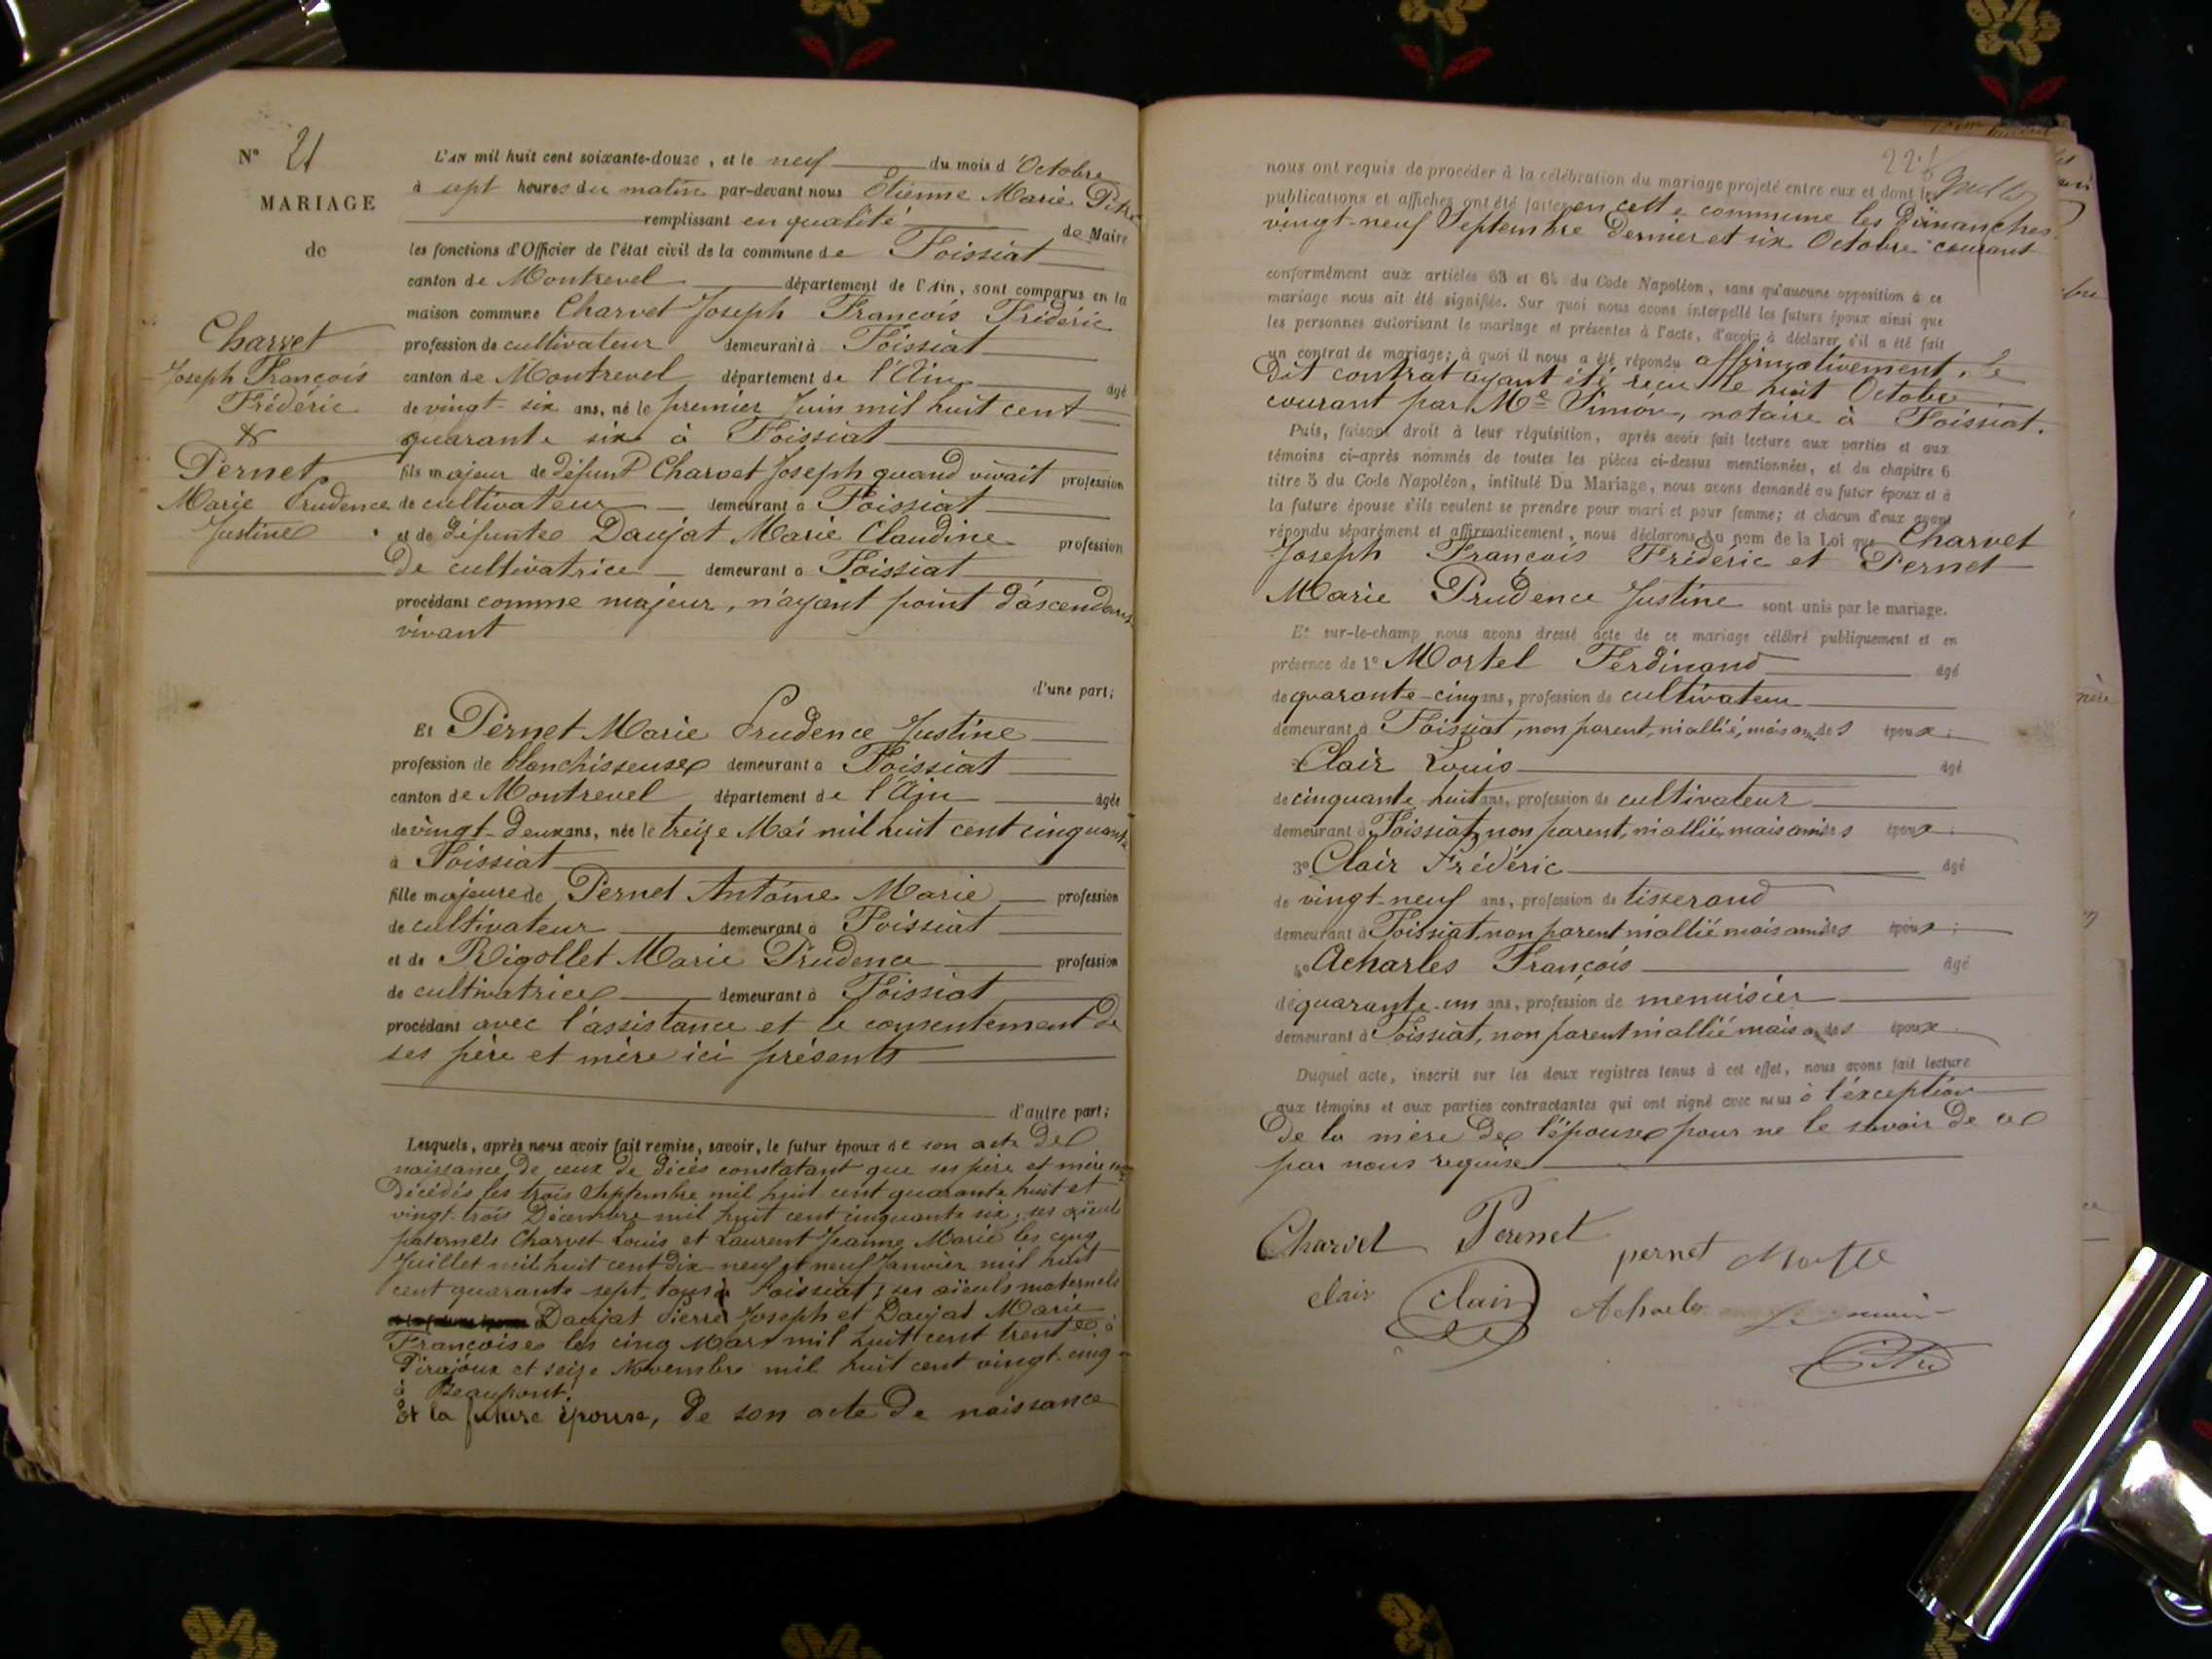 N° 21
MARIAGE
de
Charvet
Joseph François
Frédéric
&
Pernet
Marie Prudence
Justine
L'AN mil huit cent soixante-douze, et le neuf du mois d'Octobre
à sept heures du matin par-devant nous Etienne Marie
remplissant en qualité de Maire
les fonctions d'Officier de l'état civil de la commune de Foissiat
canton de Montrevel département de l'Ain, sont comparus en la
maison commune Charvet Joseph François Frédéric
profession de cultivateur demeurant à Foissiat
canton de Montrevel département de l'Ain âgé
de vingt-six ans, né le premier Juin mil huit cent
quarante six à Foissiat
fils majeur de défunt Charvet Joseph quand vivait profession
de cultivateur demeurant à Foissiat
et de défunte Daujat Marie Claudine profession
de cultivatrice demeurant à Foissiat
procédant comme majeur, n'ayant point d'ascendants
vivant
d'une part;
Et Pernet Marie Prudence Justine
profession de blanchisseuse demeurant à Foissiat
canton de Montrevel département de l'Ain âgée
de vingt-deux ans, née le treize Mai mil huit cent cinquante
à Foissiat
fille majeure de Pernet Antoine Marie profession
de cultivateur demeurant à Foissiat
et de Rigollet Marie Prudence profession
de cultivatrice demeurant à Foissiat
procédant avec l'assistance et le consentement de
ses père et mère ici présents
d'autre part;
Lesquels, après nous avoir fait remise, savoir, le futur époux de son acte de
naissance, de ceux de décès constatant que ses père et mère sont
décédés les trois Septembre mil huit cent quarante huit et
vingt-trois Décembre mil huit cent cinquante six, ses aïeuls
paternels Charvet Louis et Laurent Jeanne Marie les cinq
Juillet mil huit cent dix-neuf et neuf Janvier mil huit
cent quarante-sept, tous à Foissiat; ses aïeuls maternels
Daujat Pierre Joseph et Daujat Marie
Françoise les cinq Mars mil huit cent trente à
Pirajoux et seize Novembre mil huit cent vingt-cinq
à Beaupont.
Et la future épouse, de son acte de naissance
nous ont requis de procéder à la célébration du mariage projeté entre eux et dont les
publications et affiches ont été faites en cette commune les Dimanches
vingt-neuf Septembre dernier et six Octobre courant
conformément aux articles 63 et 64 du Code Napoléon, sans qu'aucune opposition à ce
mariage nous ait été signifiée. Sur quoi nous avons interpellé les futurs époux ainsi que
les personnes autorisant le mariage et présentes à l'acte, d'avoir à déclarer s'il a été fait
un contrat de mariage; à quoi il nous a été répondu affirmativement, le
dit contrat ayant été reçu le huit Octobre
courant par Me Simon, notaire à Foissiat.
Puis, faisant droit à leur réquisition, après avoir fait lecture aux parties et aux
témoins ci-après nommés de toutes les pièces ci-dessus mentionnées, et du chapitre 6
titre 5 du Code Napoléon, intitulé Du Mariage, nous avons demandé au futur époux et à
la future épouse s'ils veulent se prendre pour mari et pour femme; et chacun d'eux ayant
répondu séparément et affirmativement, nous déclarons au nom de la Loi que Charvet
Joseph François Frédéric et Pernet
Marie Prudence Justine sont unis par le mariage.
Et sur-le-champ nous avons dressé acte de ce mariage célébré publiquement et en
présence de 1° Mortel Ferdinand âgé
de quarante-cinq ans, profession de cultivateur
demeurant à Foissiat, non parent, ni allié, mais ami des époux;
Clair Louis âgé
de cinquante huit ans, profession de cultivateur
demeurant à Foissiat, non parent, ni allié, mais ami des époux;
3° Clair Frédéric âgé
de vingt-neuf ans, profession de tisserand
demeurant à Foissiat, non parent ni allié mais ami des époux;
4° Acharles François âgé
de quarante-un ans, profession de menuisier
demeurant à Foissiat, non parent ni allié mais ami des époux.
Duquel acte, inscrit sur les deux registres tenus à cet effet, nous avons fait lecture
aux témoins et aux parties contractantes qui ont signé avec nous à l'exception
de la mère de l'épouse pour ne le savoir de ce
par nous requise
Charvet Pernet pernet
clair clair Acharles